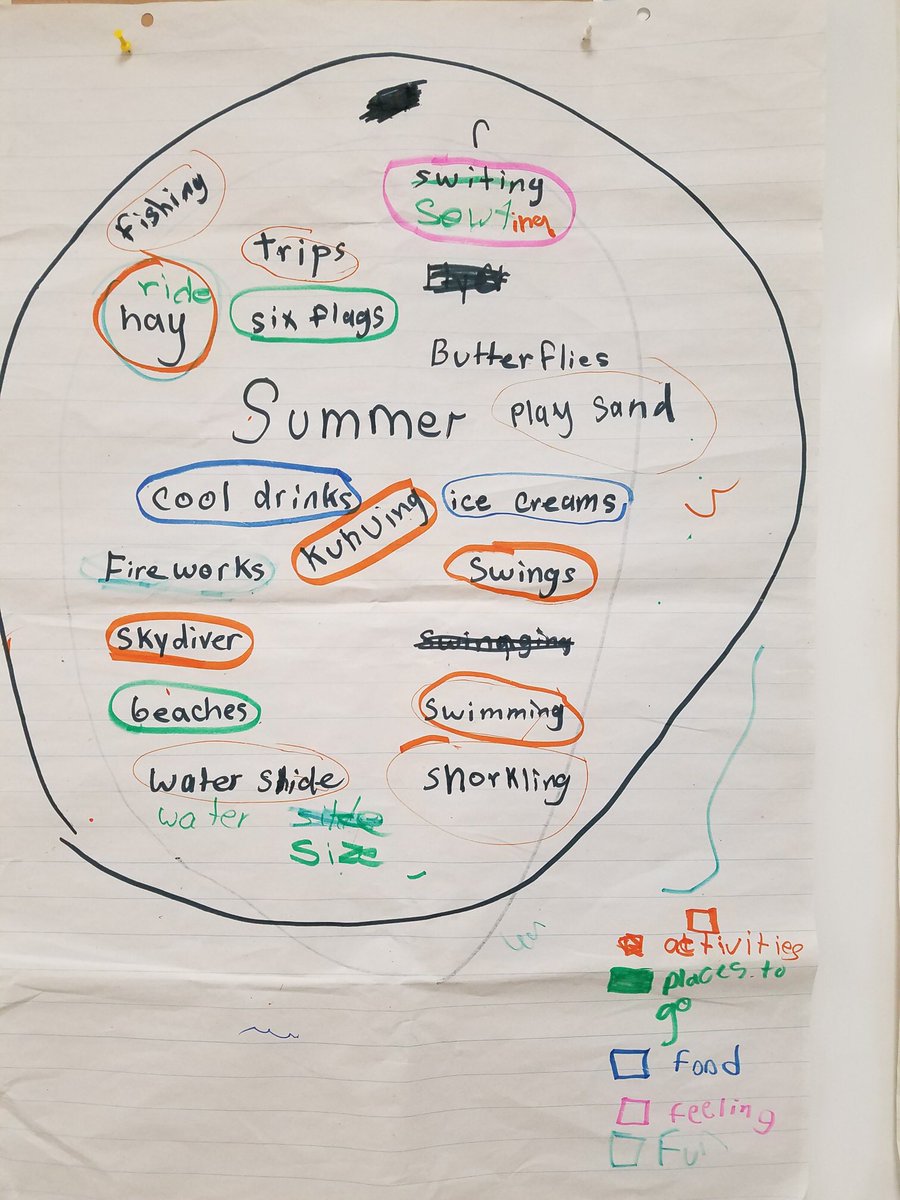 switing
sewtiner
fishing
trips
ride
hay
six flags
Butterflies
Summer
play sand
cool drinks
ice creams
Kuhuing
Fireworks
Swings
skydiver
Swingging
beaches
Swimming
water slide
snorkling
water slide
size
activities
places to
go
food
feeling
Fun